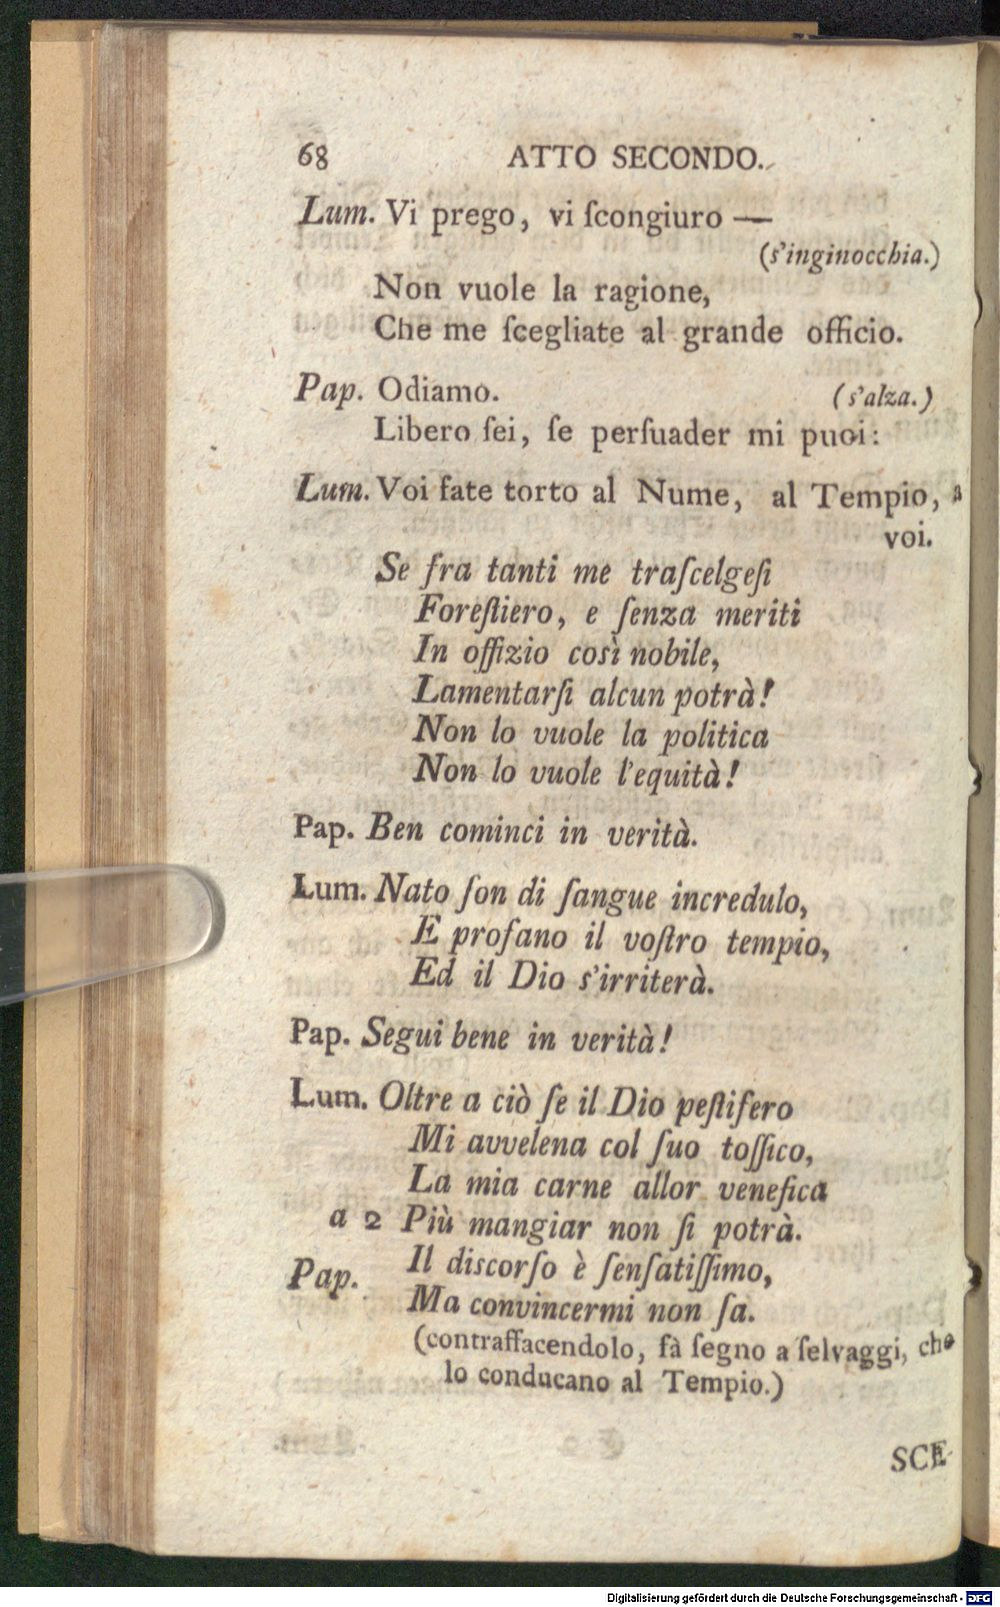 68 ATTO SECONDO.
Lum. Vi prego, vi ſcongiuro —
(s'inginocchia.)
Non vuole la ragione,
Che me ſcegliate al grande officio.
Pap. Odiamo. (s'alza.)
Libero ſei, ſe perſuader mi puoi:
Lum. Voi fate torto al Nume, al Tempio, a
voi.
Se fra tanti me traſcelgeſi
Foreſtiero, e ſenza meriti
In offizio così nobile,
Lamentarſi alcun potrà!
Non lo vuole la politica
Non lo vuole l'equità!
Pap. Ben cominci in verità.
Lum. Nato ſon di ſangue incredulo,
E profano il voſtro tempio,
Ed il Dio s'irriterà.
Pap. Segui bene in verità!
Lum. Oltre a ciò ſe il Dio peſtifero
Mi avvelena col ſuo toſſico,
La mia carne allor venefica
a 2 Più mangiar non ſi potrà.
Pap. Il discorſo è ſenſatiſſimo,
Ma convincermi non ſa.
(contraffacendolo, fà ſegno a ſelvaggi, che
lo conducano al Tempio.)
SCE
Digitalisierung gefördert durch die Deutsche Forschungsgemeinschaft - DFG